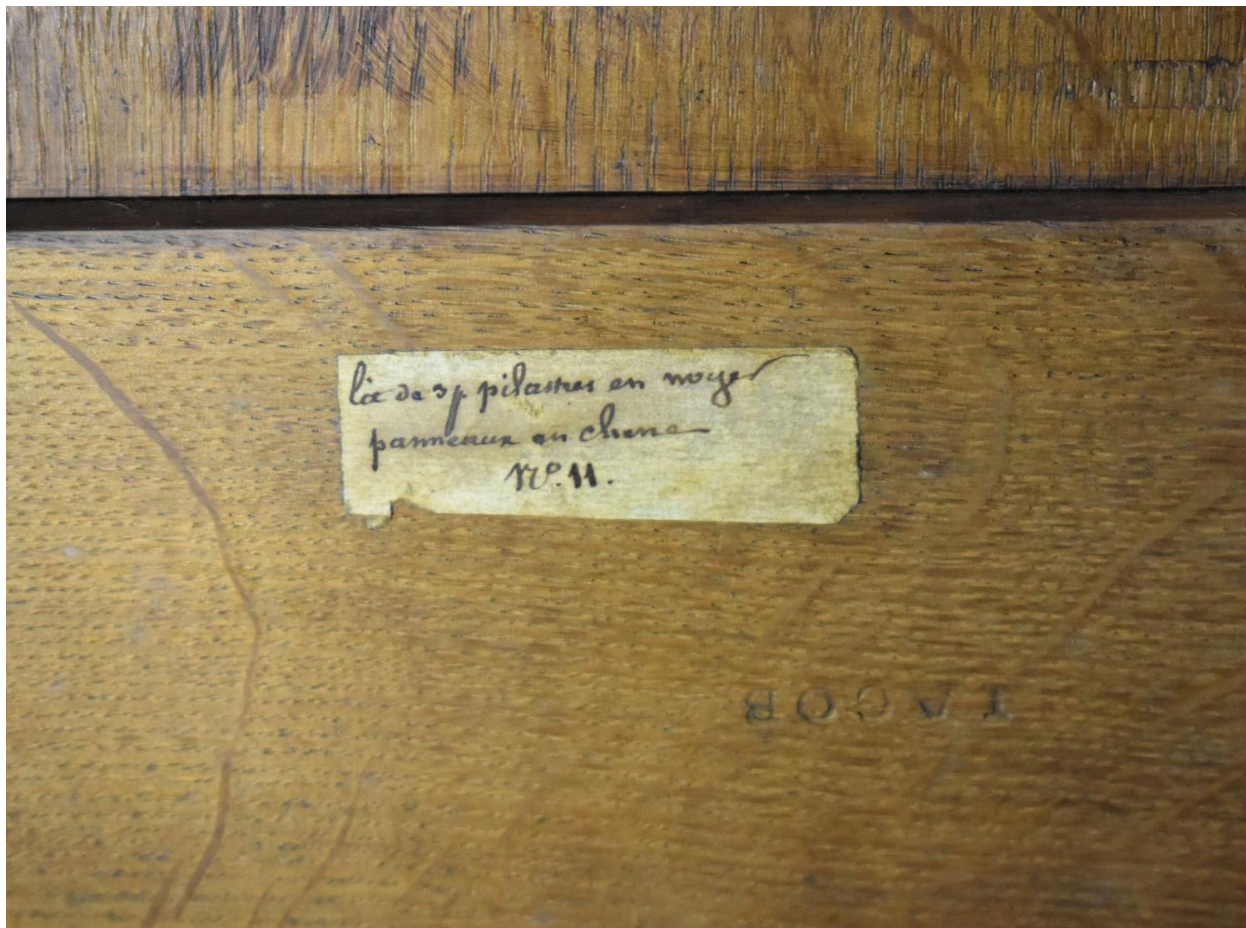 lit de 3p pilastres en noyer
panneaux en chene
No. 11.
JACOB